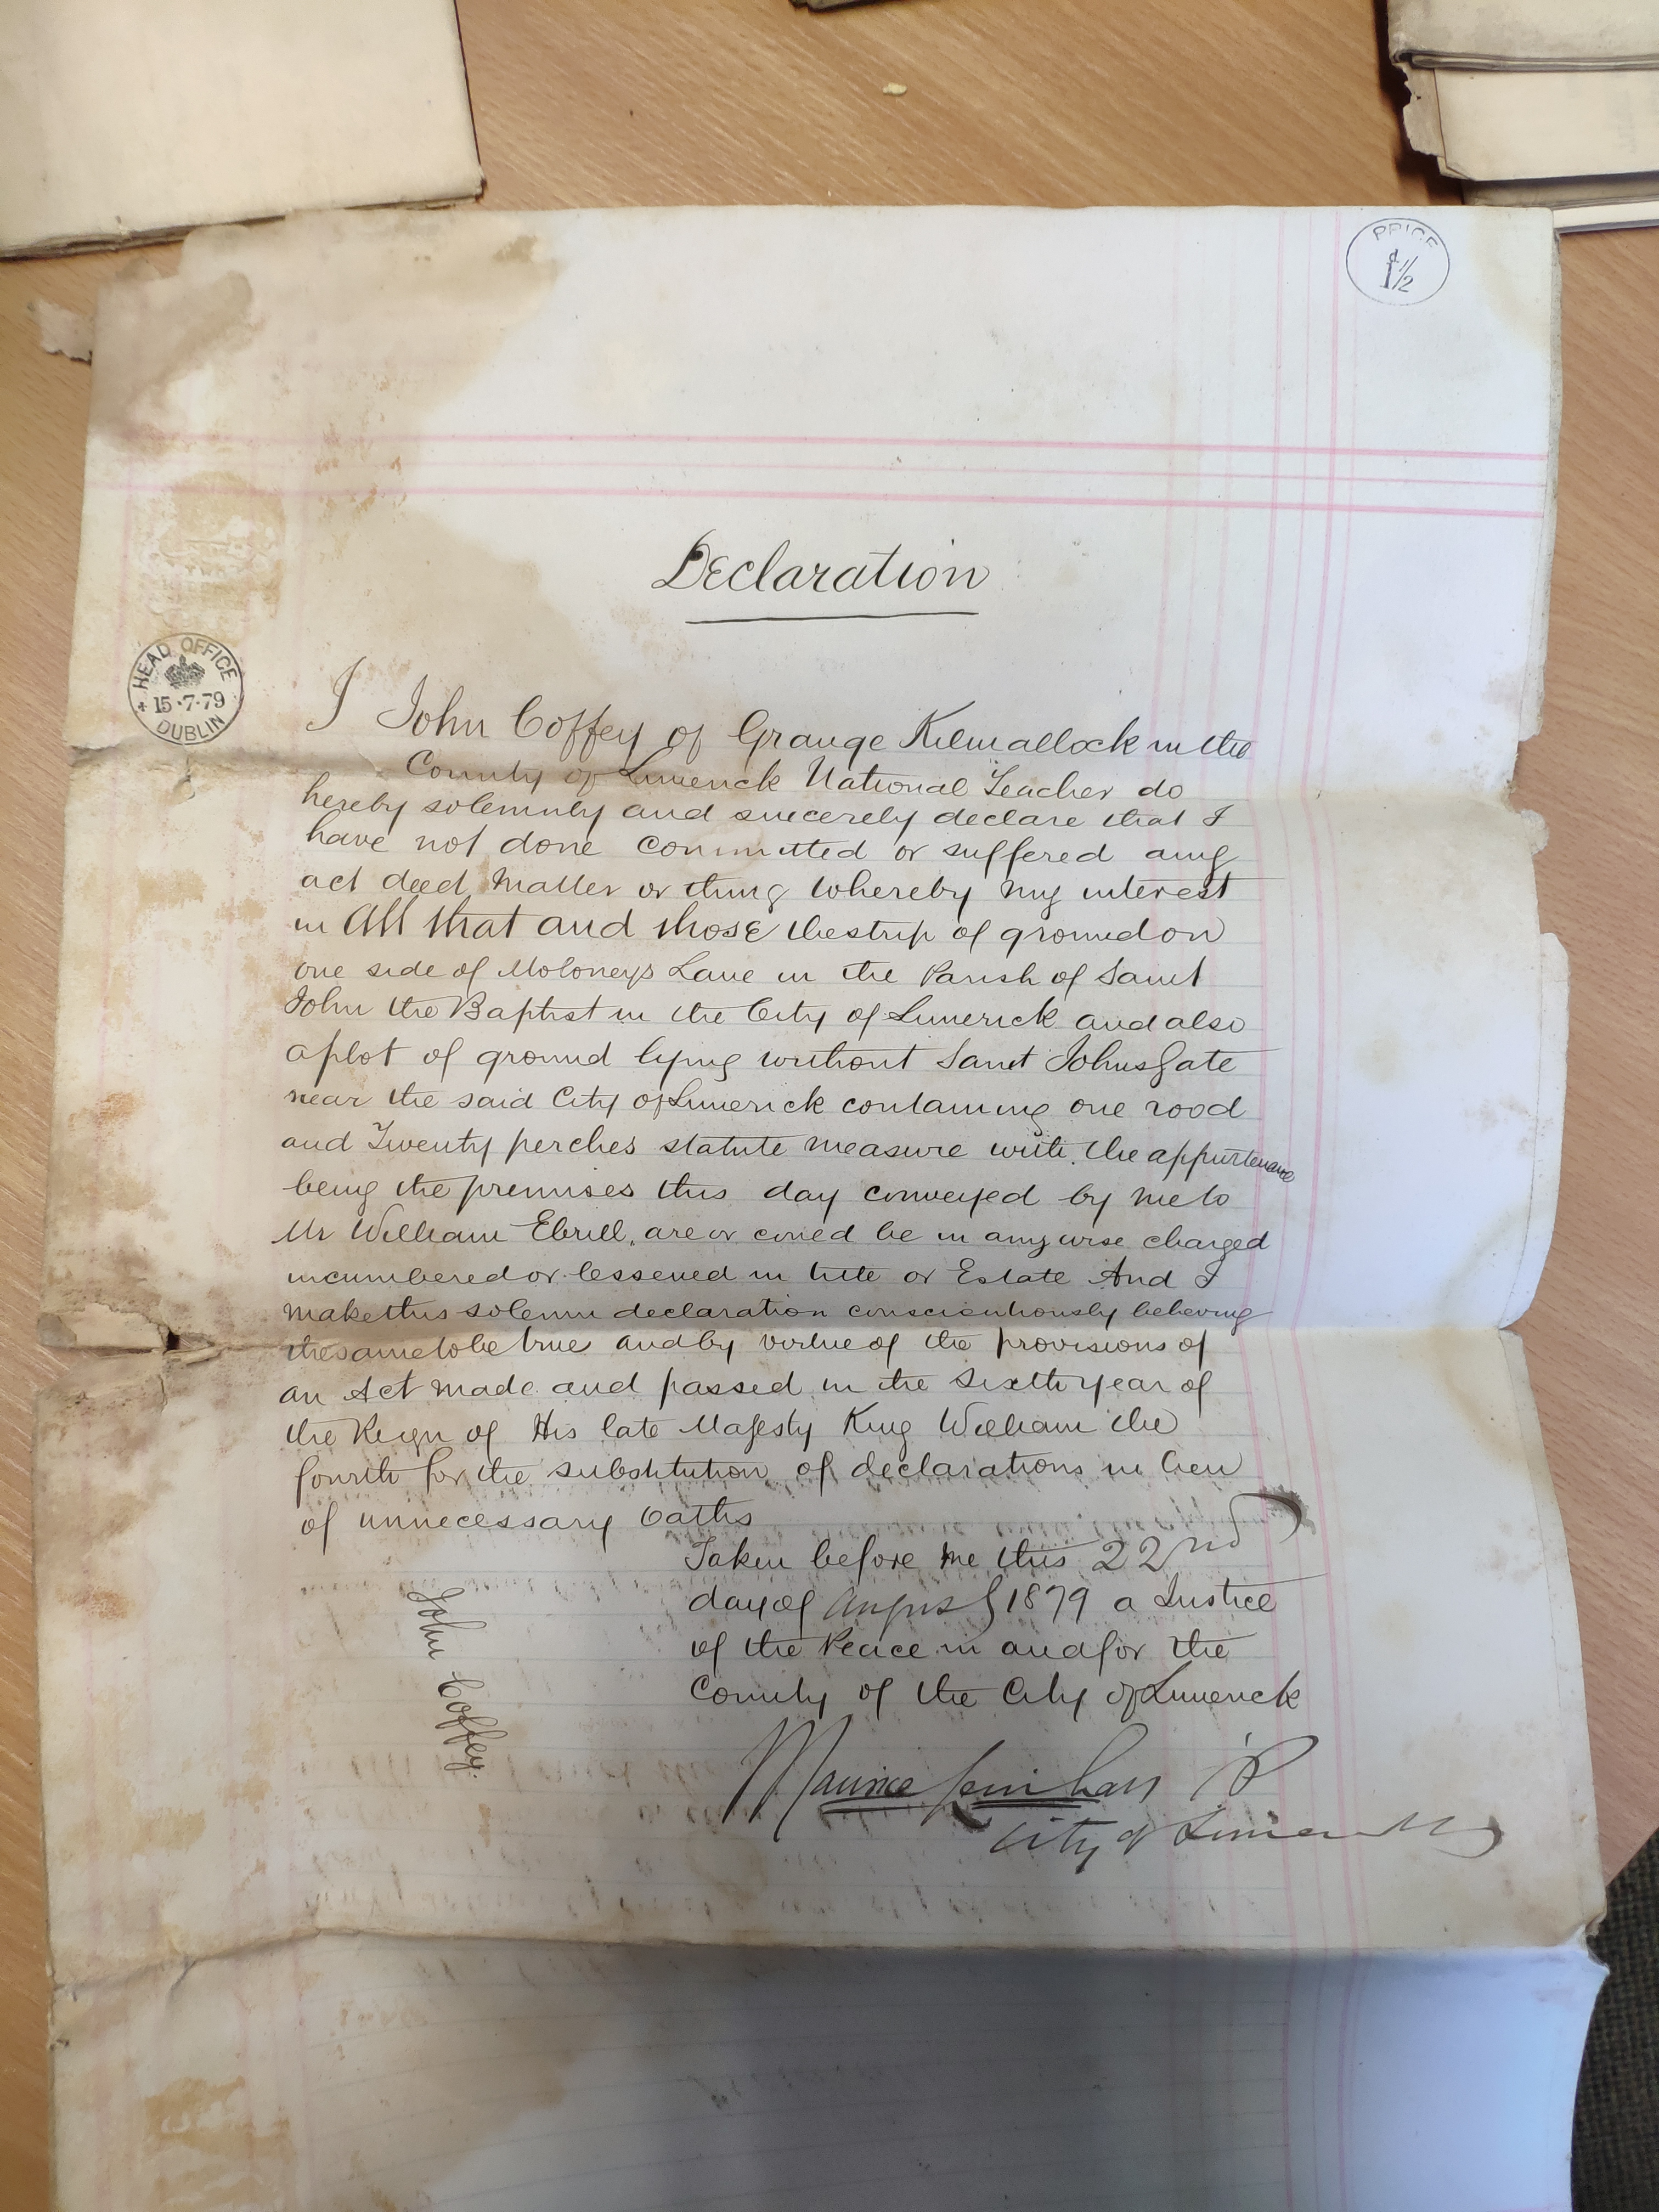 PRICE
1½d
Declaration
HEAD OFFICE
15·7·79
DUBLIN
I John Coffey of Grange Kilmallock in the
County of Limerick National Teacher do
hereby solemnly and sincerely declare that I
have not done committed or suffered any
act deed matter or thing whereby my interest
in All that and those the strip of ground on
one side of Moloneys Lane in the Parish of Saint
John the Baptist in the City of Limerick and also
a plot of ground lying without Saint Johns Gate
near the said City of Limerick containing one rood
and Twenty perches statute measure with the appurtenance
being the premises this day conveyed by me to
Mr William Ebrill, are or could be in any wise charged
incumbered or lessened in title or Estate And I
make this solemn declaration conscientiously believing
the same to be true and by virtue of the provisions of
an Act made and passed in the sixth year of
the Reign of His late Majesty King William the
fourth for the substitution of declarations in lieu
of unnecessary Oaths
Taken before me this 22nd
day of August 1879 a Justice
of the Peace in and for the
County of the City of Limerick
John Coffey.
Maurice Lenihan JP
City of Limerick